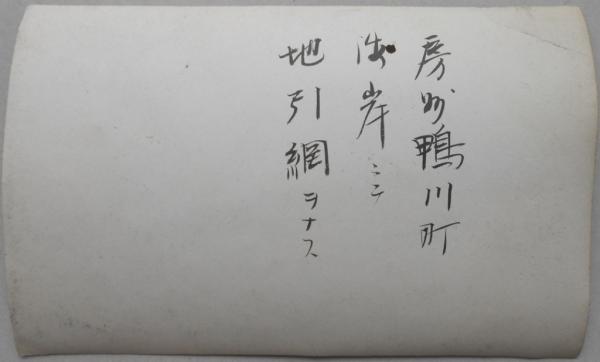 房州鴨川町
海岸ニテ
地引網ヲナス